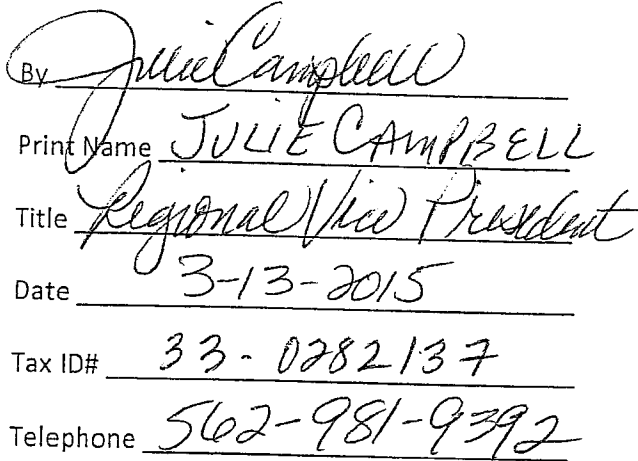 By Julie Campbell
Print Name JULIE CAMPBELL
Title Regional Vice President
Date 3-13-2015
Tax ID# 33-0282137
Telephone 562-981-9392